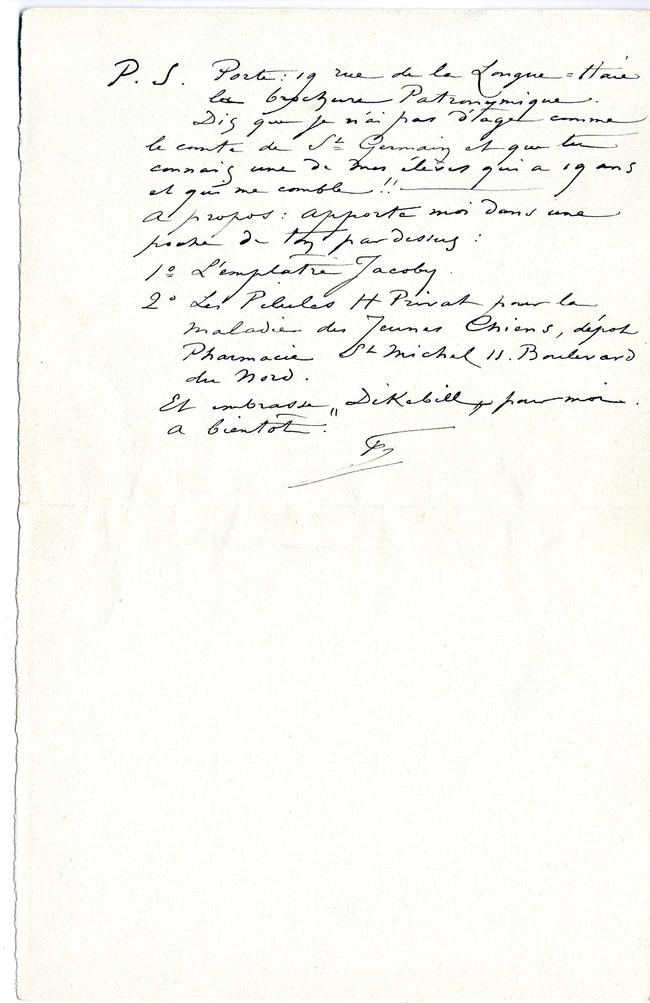 P. S. Porte: 19 rue de la Longue=Haie
la brochure Patronymique.
Dis que je n'ai pas d'age comme
le comte de St Germain et que tu
connais une de mes élèves qui a 19 ans
et qui me comble !!
A propos: apporte moi dans une
poche de ton pardessus:
1º L'emplatre Jacoby.
2º Les Pilules H Privat pour la
maladie des Jeunes Chiens, dépot
Pharmacie St Michel 15. Boulevard
du Nord.
Et embrasse „DiKebill„ pour moi.
A bientôt.